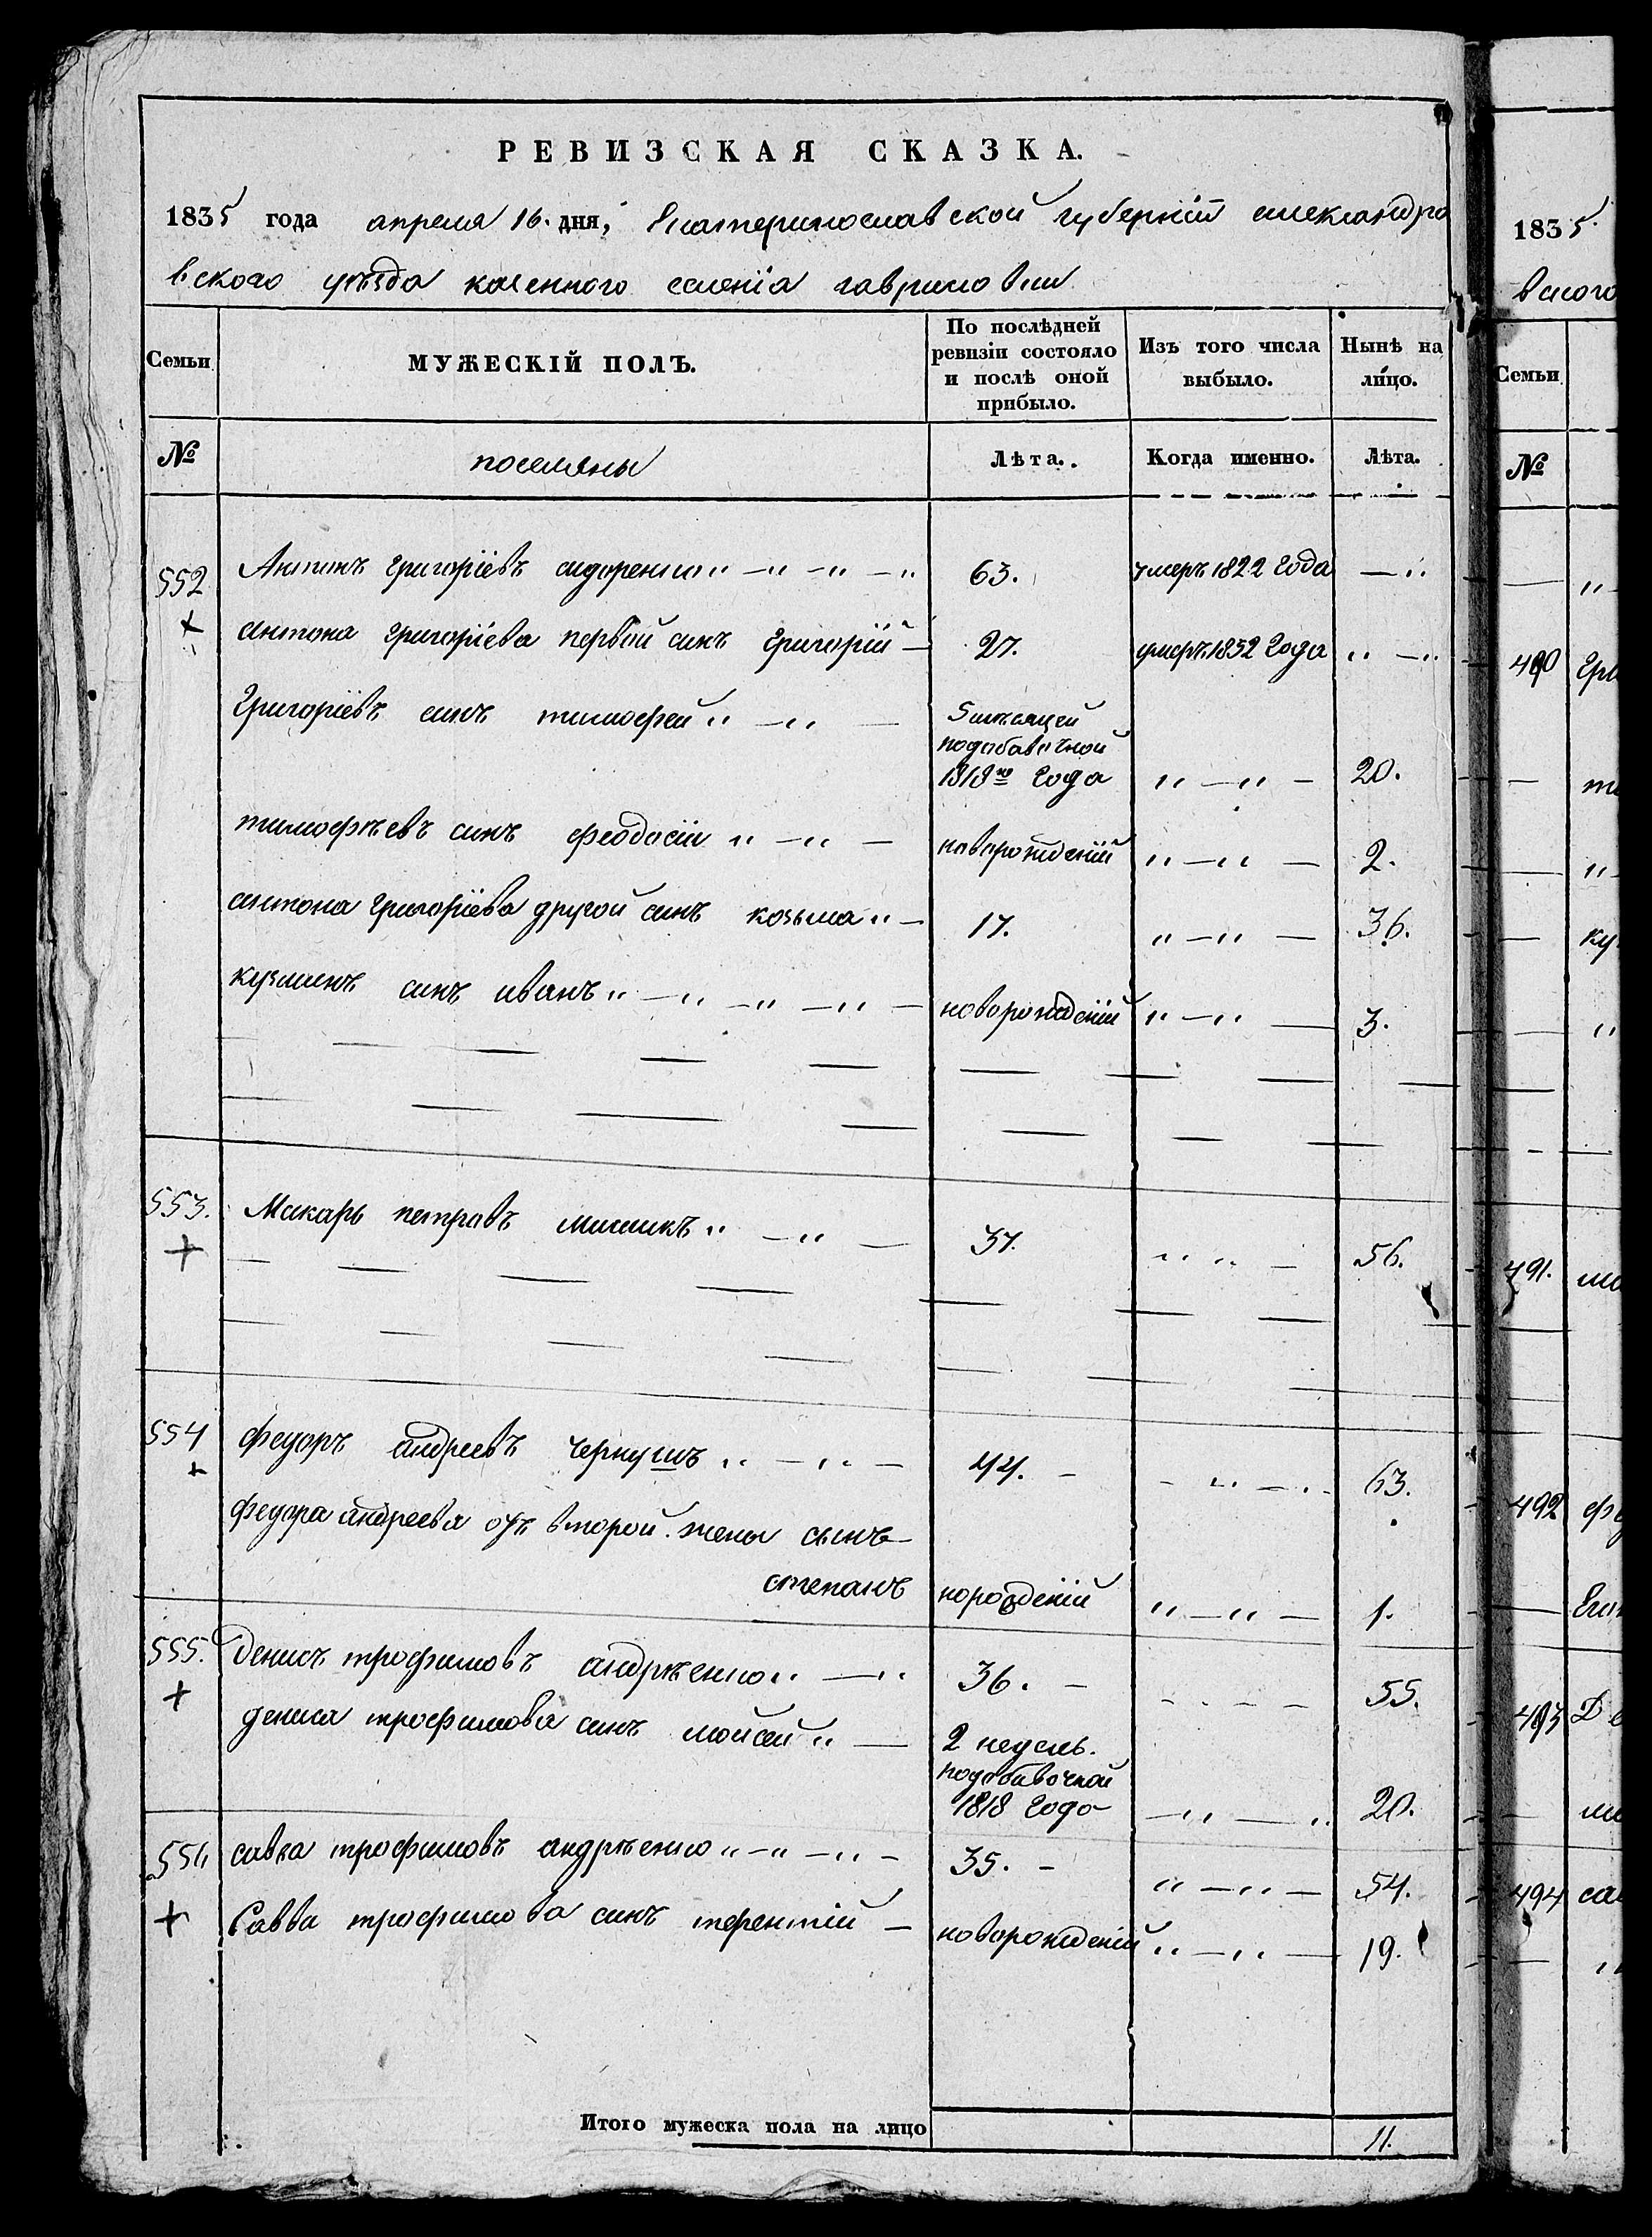 РЕВИЗСКАЯ СКАЗКА.
1835 года апреля 16. дня, Екатеринославской губерніи александро
вского уѣзда казенного селенія гавриловки
Семьи МУЖЕСКІЙ ПОЛЪ. По послѣдней ревизіи состояло и послѣ оной прибыло. Изъ того числа выбыло. Нынѣ на лицо.
№ поселяны Лѣта. Когда именно. Лѣта.
552 Антонъ григоріевъ сидоренко 63. умеръ 1822 года
антона григоріева первой синъ григорій 27. умеръ 1832 года
григоріевъ синъ тимофей 5 мѣсяцей
подобавочной
1818го года 20.
тимофѣевъ синъ феодосіи новорожденій 2.
антона григоріева другой синъ козьма 17. 36.
кузминъ синъ иванъ новорожденій 3.
553. Макаръ петровъ 37. 56.
554 федоръ андреевъ чернушъ 44. 63.
федора андреева отъ второй жены сынъ
степанъ норожденій 1.
555. Денисъ трофимовъ андрѣенко 36. 55.
дениса трофимова синъ мойсей 2 недель.
подобавочной
1818 года 20.
556 савва трофимовъ андрѣенко 35. 54.
Савва трофимова синъ терентій новорожденій 19.
Итого мужеска пола на лицо 11.
1835.
Семьи
№
490
491.
492
493
494